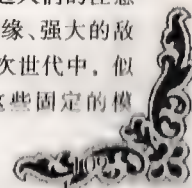 缘、强大的敌
次世代中，似
这些固定的模